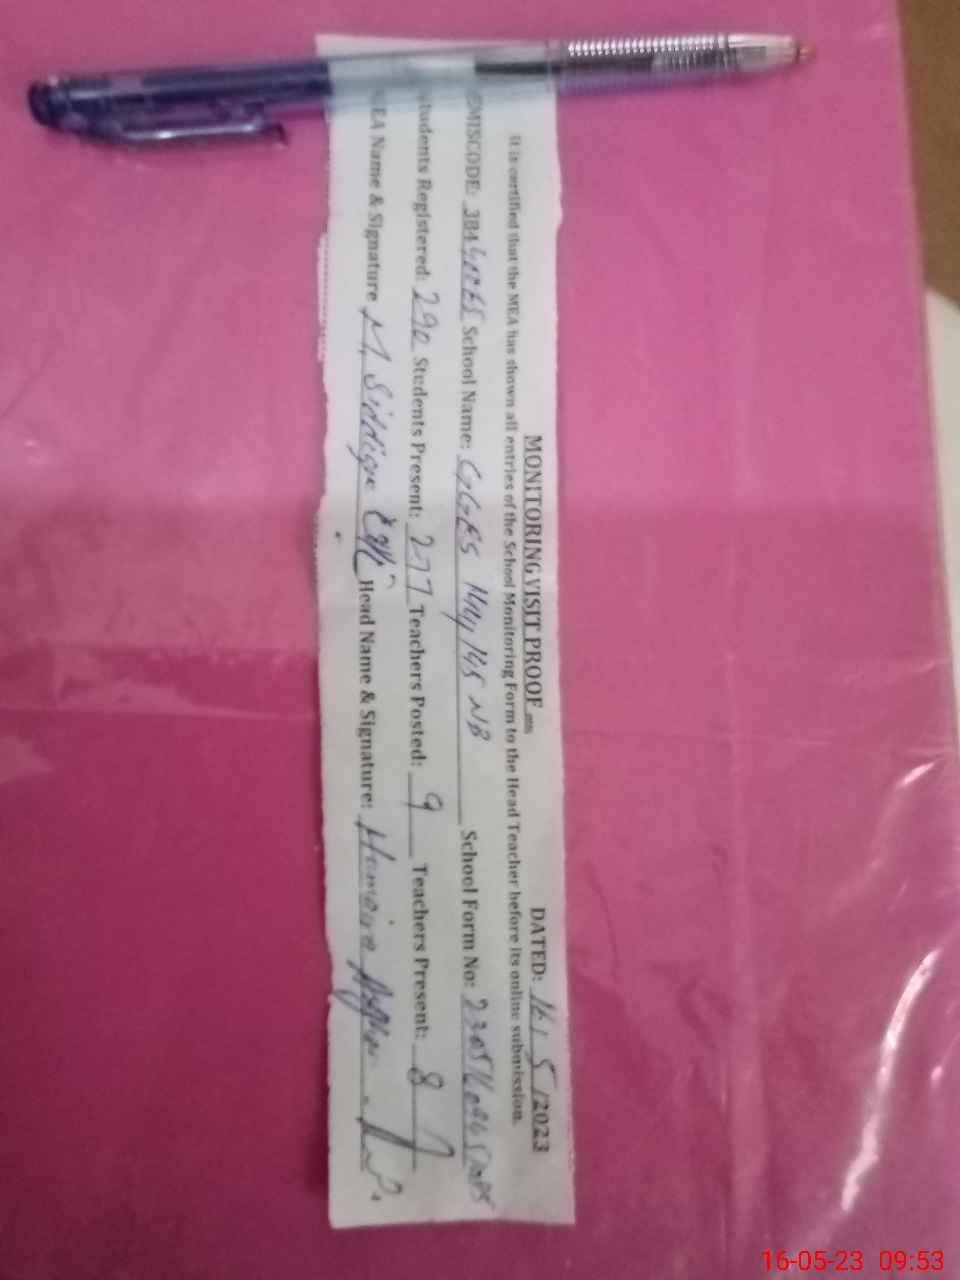 MONITORING VISIT PROOF DATED: 16 / 5 /2023
It is certified that the MEA has shown all entries of the School Monitoring Form to the Head Teacher before its online submission.
EMISCODE: 384 School Name: GGES 145 NB School Form No:
Students Registered: 290 Students Present: 277 Teachers Posted: 9 Teachers Present: 8
MEA Name & Signature M. Siddique Head Name & Signature: Humaira
16-05-23 09:53